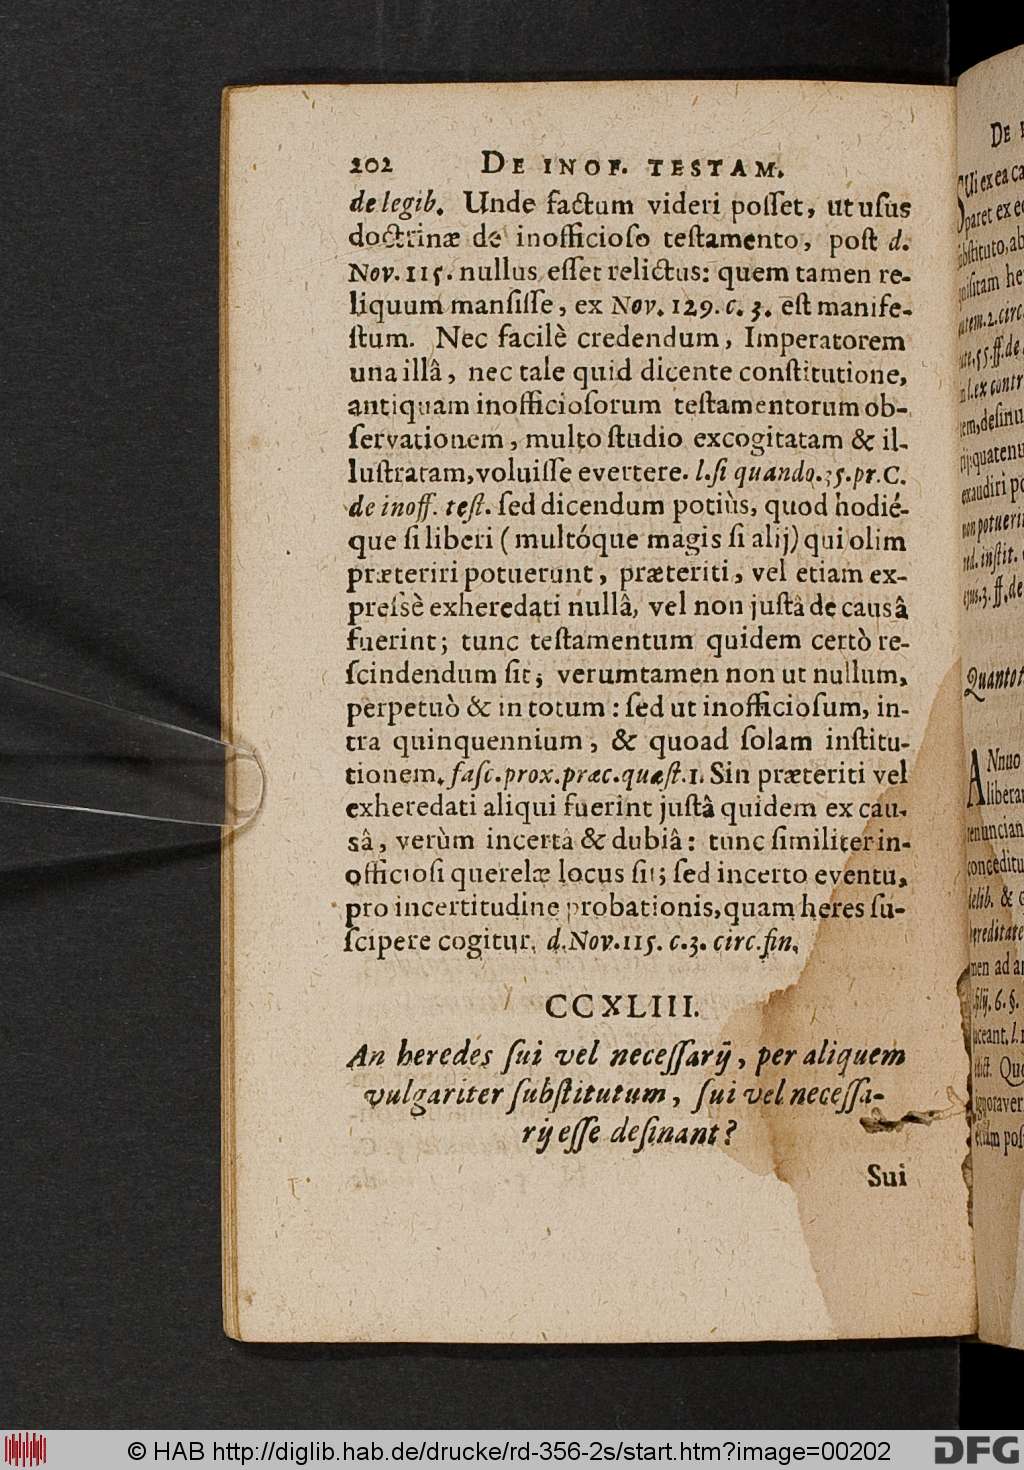 202 DE INOF. TESTAM.
de legib. Unde factum videri poſſet, ut uſus
doctrinæ de inofficioſo teſtamento, poſt d.
Nov. 115. nullus eſſet relictus: quem tamen re-
liquum manſiſſe, ex Nov. 129. c. 3. eſt manife-
ſtum. Nec facilè credendum, Imperatorem
una illâ, nec tale quid dicente conſtitutione,
antiquam inofficioſorum teſtamentorum ob-
ſervationem, multo ſtudio excogitatam & il-
luſtratam, voluiſſe evertere. l. ſi quando. 35. pr. C.
de inoff. teſt. ſed dicendum potiùs, quod hodié-
que ſi liberi ( multóque magis ſi alij) qui olim
præteriri potuerunt, præteriti, vel etiam ex-
preſsè exheredati nullâ, vel non juſtâ de causâ
fuerint; tunc teſtamentum quidem certò re-
ſcindendum ſit; verumtamen non ut nullum,
perpetuò & in totum: ſed ut inofficioſum, in-
tra quinquennium, & quoad ſolam inſtitu-
tionem. faſc. prox. præc. quæſt. 1. Sin præteriti vel
exheredati aliqui fuerint juſtâ quidem ex cau-
sâ, verùm incertâ & dubiâ: tunc ſimiliter in-
officioſi querelæ locus ſit; ſed incerto eventu,
pro incertitudine probationis, quam heres ſu-
ſcipere cogitur. d. Nov. 115. c. 3. circ. fin.
CCXLIII.
An heredes ſui vel neceſſarij, per aliquem
vulgariter ſubſtitutum, ſui vel neceſſa-
rij eſſe deſinant?
Sui
© HAB http://diglib.hab.de/drucke/rd-356-2s/start.htm?image=00202
DFG